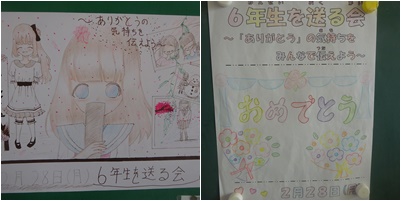 ～ありがとうの
気持ちを
伝えよう～
月28日(月)
6年生を送る会
6年生を送る会
～「ありがとう」の気持ちを
みんなで伝えよう～
おめでとう
2月28日